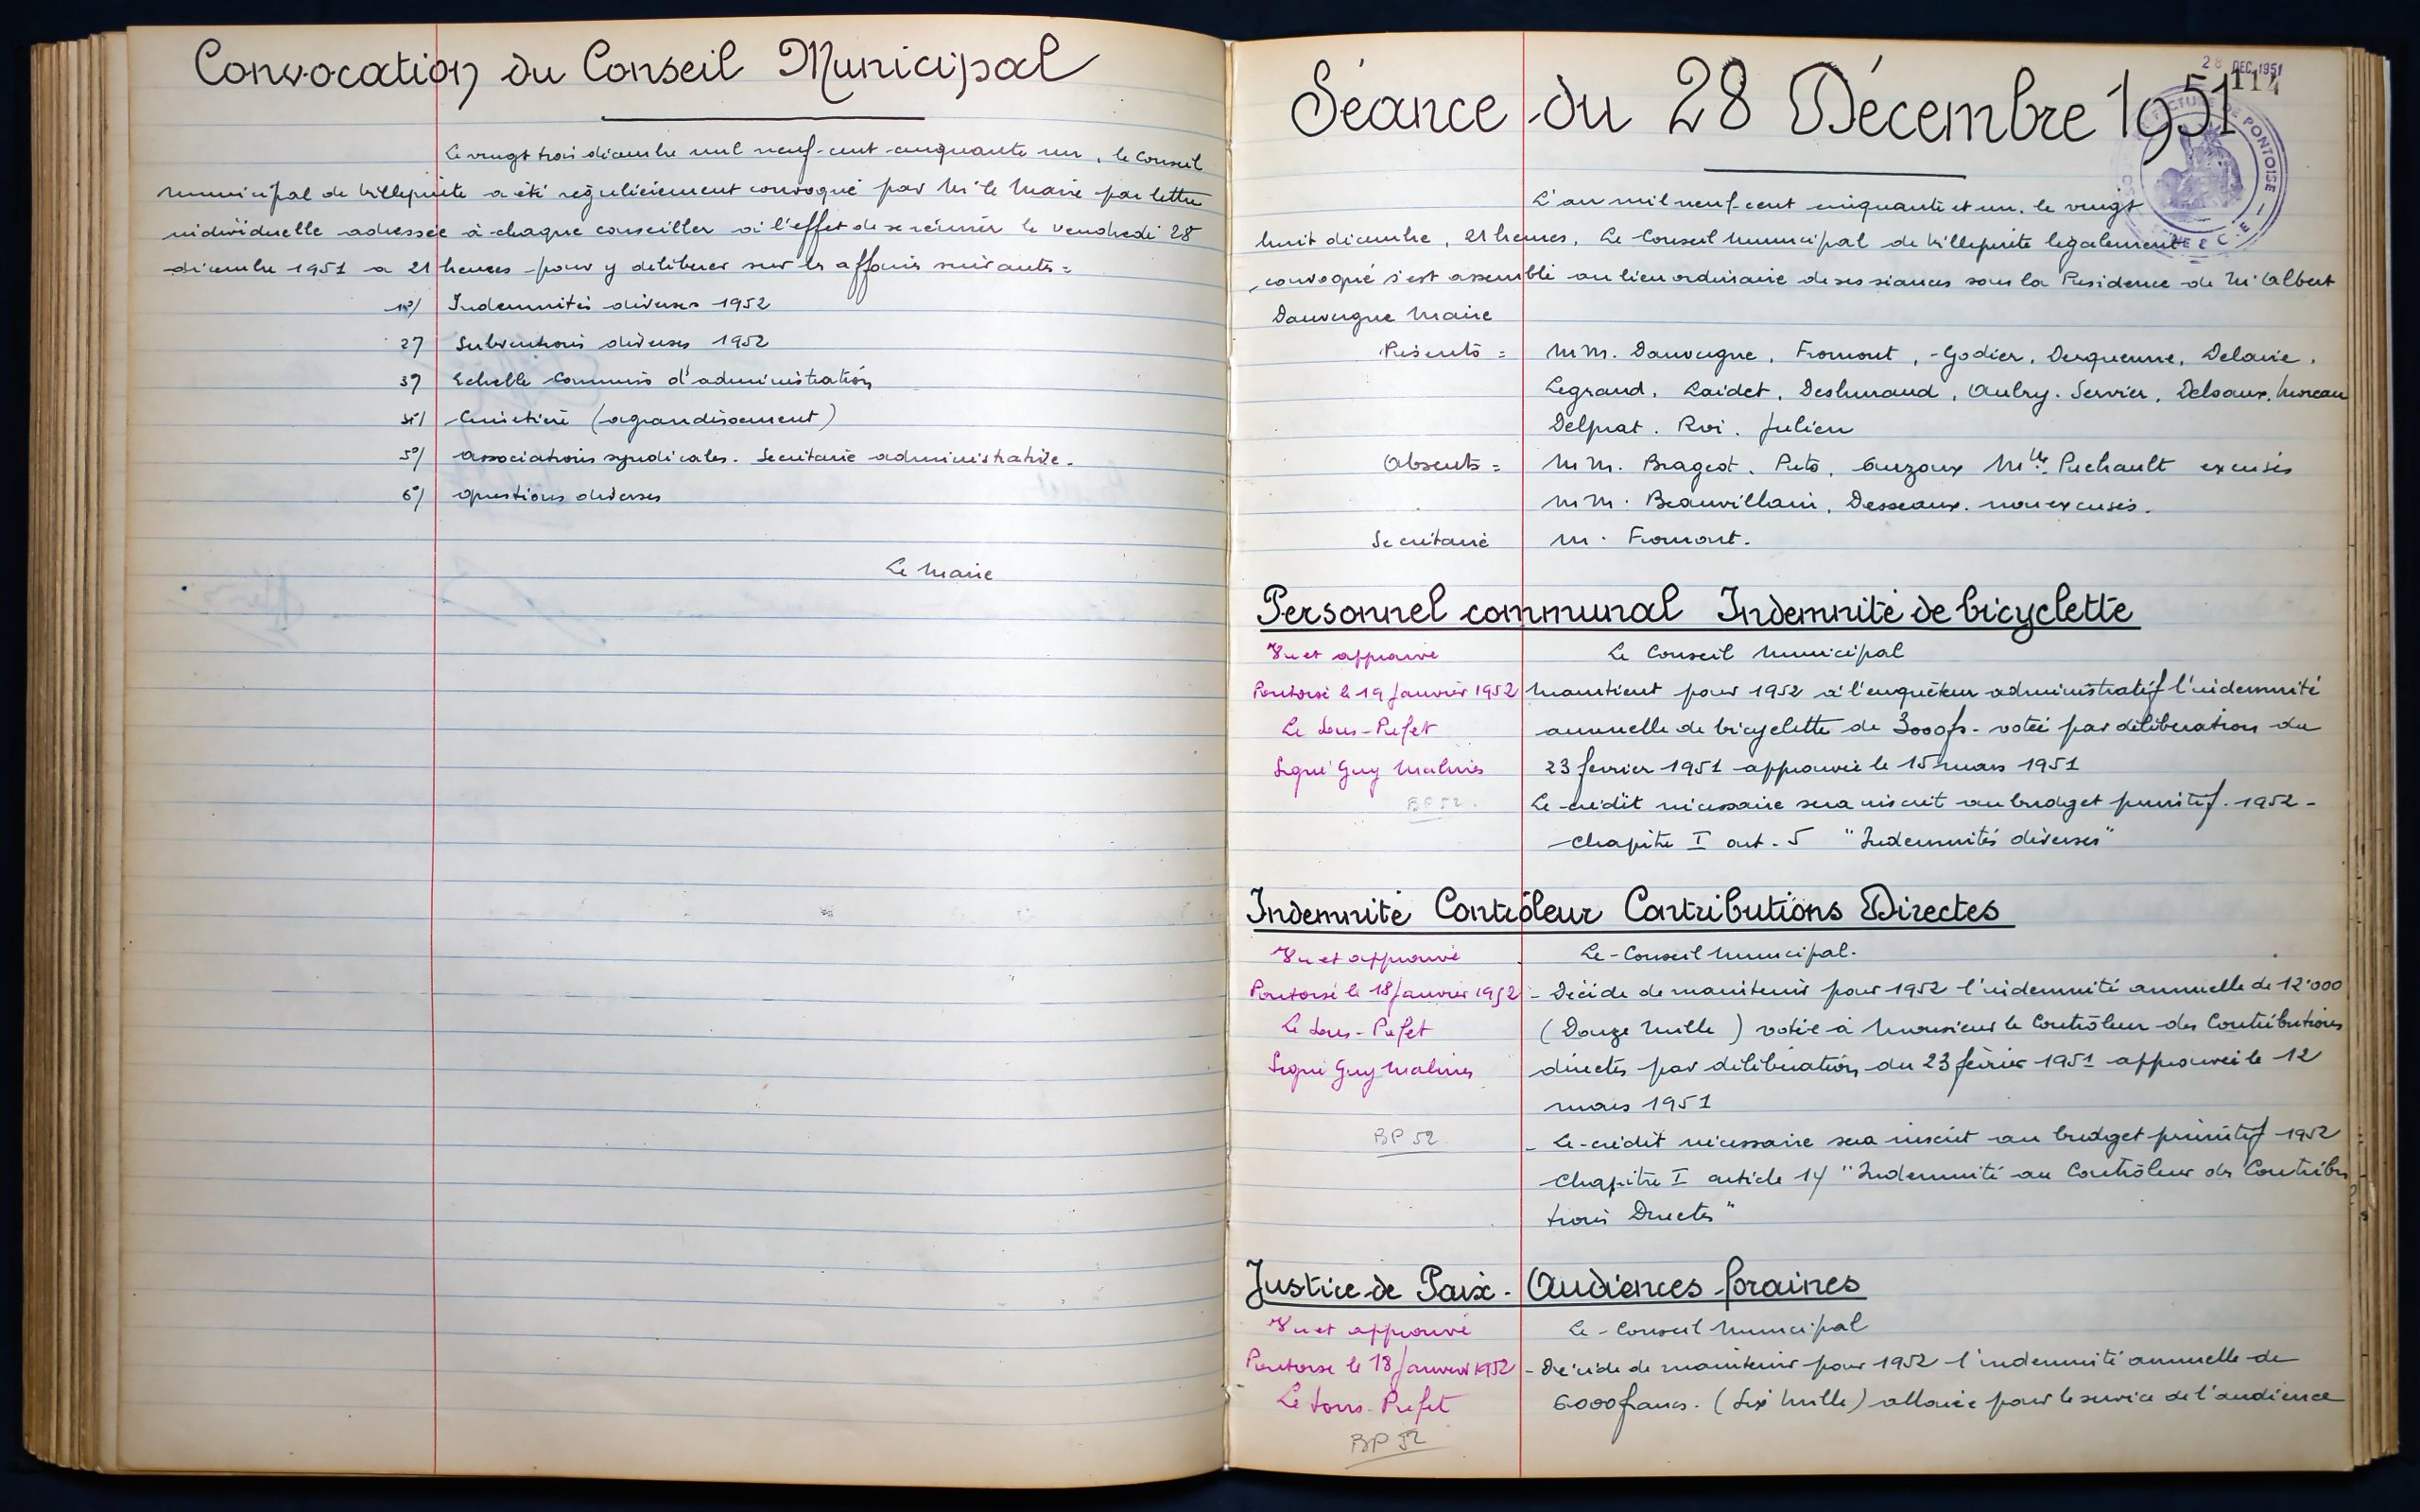 Convocation du Conseil Municipal
Le vingt trois décembre mil neuf-cent cinquante un, le Conseil
municipal de Villepinte a été régulièrement convoqué par Mr le Maire par lettre
individuelle adressée à chaque conseiller à l'effet de se réunir le vendredi 28
décembre 1951 a 21 heures pour y délibérer sur les affaires suivantes =
1°/ Indemnités diverses 1952
2°/ Subventions diverses 1952
3°/ Echelle Commis d'administration
4°/ Cimetière (agrandissement)
5°/ associations syndicales. Secrétaire administrative.
6°/ questions diverses
Le Maire
28 DEC. 1951
114
Séance du 28 Décembre 1951
DE PONTOISE
L'an mil neuf-cent cinquante et un, le vingt
huit décembre, 21 heures, Le Conseil Municipal de Villepinte légalement
convoqué s'est assemblé au lieu ordinaire de ses séances sous la Présidence de Mr Albert
Dauvergne Maire
Présents = MM. Dauvergne, Fromont, Godier, Derquenne, Delaire,
Legrand, Laidet, Deshuraud, Aubry. Servier, Delsaux, Moreau
Delprat. Roi. Julien
Absents = MM. Brageot. Puto, Guzoux Mlle Puchault excusés
MM. Beauvillain, Desseaux. non excusés.
Secrétaire M. Fromont.
Personnel communal Indemnité de bicyclette
Vu et approuvé Le Conseil Municipal
Pontoise le 19 Janvier 1952 Maintient pour 1952 à l'enquêteur administratif l'indemnité
Le Sous-Préfet annuelle de bicyclette de 3000 frs. votée par délibération du
Signé Guy Malines 23 février 1951 approuvée le 15 mars 1951
BP 52. Le crédit nécessaire sera inscrit au budget primitif. 1952 -
Chapitre I art. 5 "Indemnités diverses"
Indemnité Contrôleur Contributions Directes
Vu et approuvé Le Conseil Municipal.
Pontoise le 18 Janvier 1952 - Décide de maintenir pour 1952 l'indemnité annuelle de 12'000
Le Sous-Préfet (Douze Mille) votée à Monsieur le Contrôleur des Contributions
Signé Guy Malines directes par délibération du 23 février 1951 approuvée le 12
mars 1951
BP 52 - Le crédit nécessaire sera inscrit au budget primitif 1952
Chapitre I article 14 "Indemnité au Contrôleur des Contribu
tions Directes"
Justice de Paix - Audiences foraines
Vu et approuvé Le Conseil Municipal
Pontoise le 18 Janvier 1952 - Décide de maintenir pour 1952 l'indemnité annuelle de
Le Sous-Préfet 6000 francs. (Six Mille) allouée pour le service de l'audience
BP 52